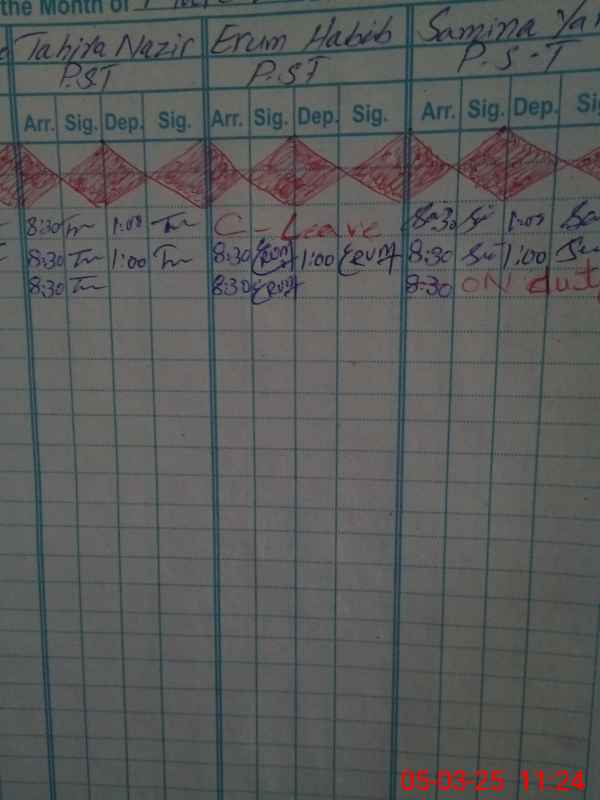 the Month of
Tahira Nazir Erum Habib Samina
P.S.T P.ST P.S-T
Arr. Sig. Dep. Sig. Arr. Sig. Dep. Sig. Arr. Sig. Dep.
8:30 Tn 1:00 Tn C-Leave 8:30 1:00
8:30 Tn 1:00 Tn 8:30 Erum 1:00 Erum 8:30 1:00
8:30 Tn 8:30 Erum 8:30 ON duty
05-03-25 11:24